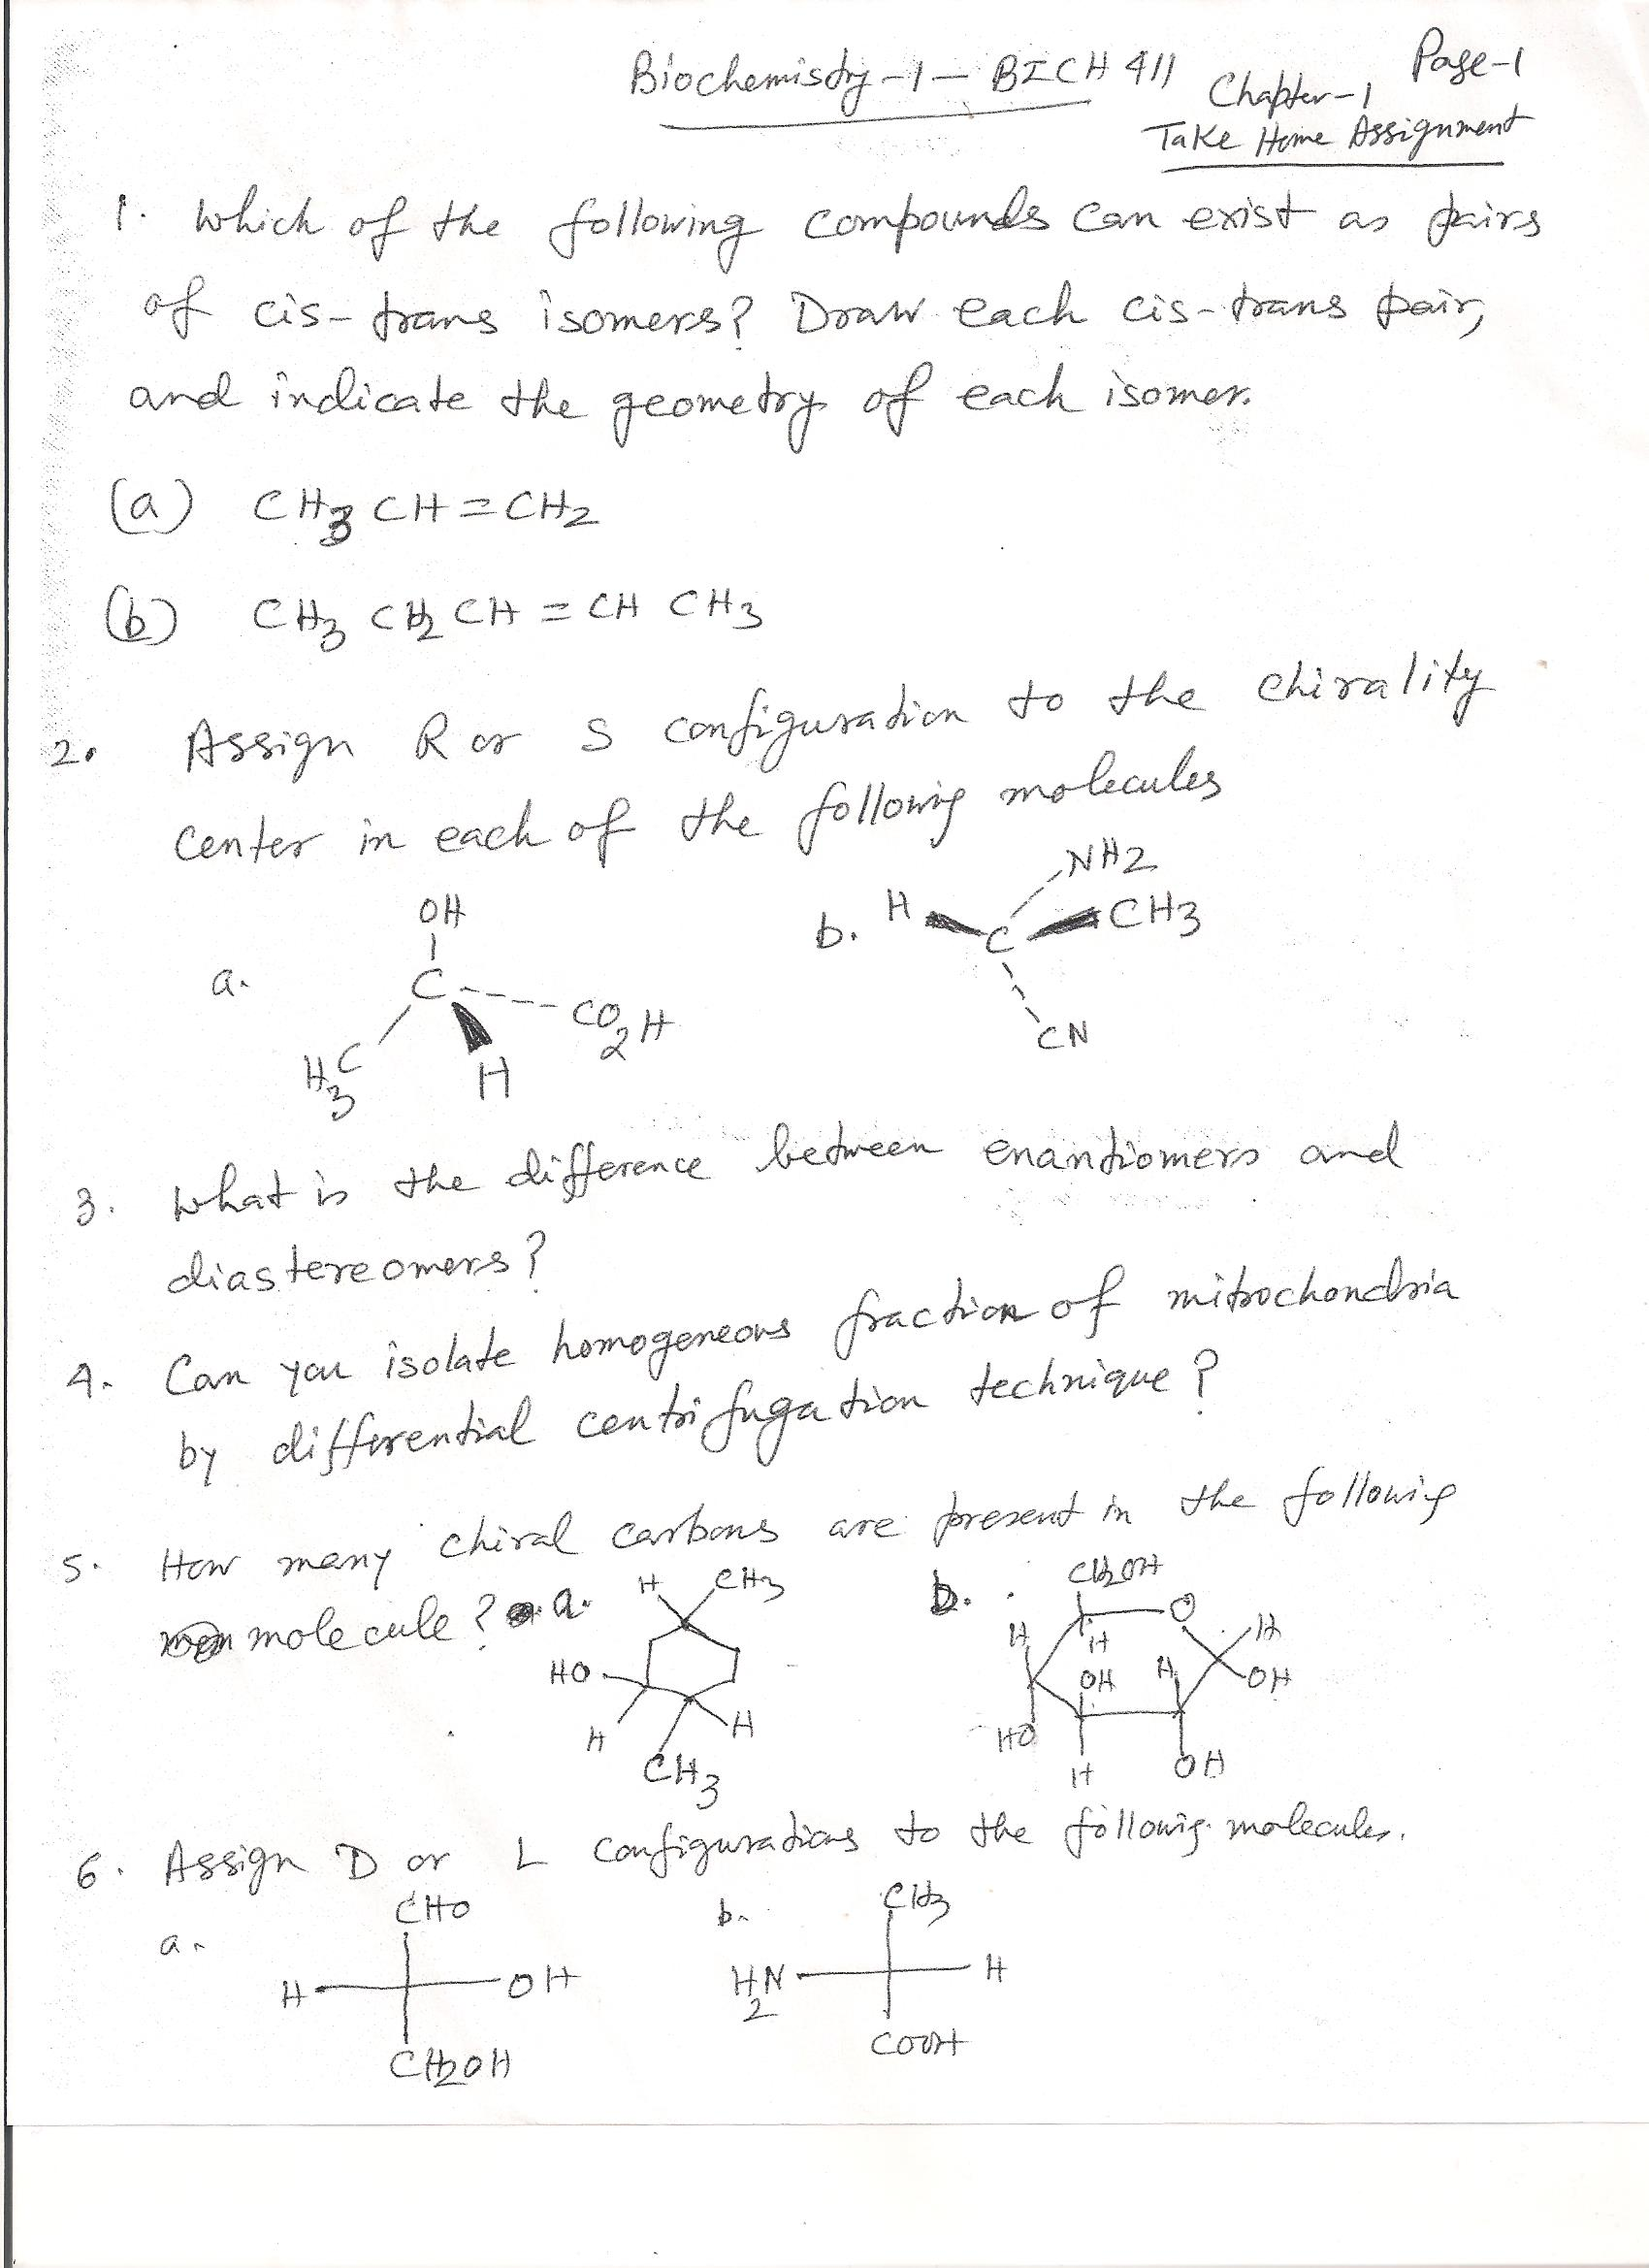 Biochemistry-1- BICH 411
Page-1
Chapter-1
Take Home Assignment
1. Which of the following compounds can exist as pairs
of cis-trans isomers? Draw each cis-trans pair,
and indicate the geometry of each isomer.
(a) CH3 CH=CH2
(b) CH3 CH2 CH = CH CH3
2. Assign R or S configuration to the chirality
center in each of the following molecules
a.
OH
C
CO2H
H3C
H
b.
H
NH2
C
CH3
CN
3. What is the difference between enantiomers and
diastereomers?
4. Can you isolate homogeneous fraction of mitochondria
by differential centrifugation technique?
5. How many chiral carbons are present in the following
molecule? a.
H
CH3
HO
H
H
CH3
b.
CH2OH
O
H
H
H
OH
H
OH
HO
H
OH
6. Assign D or L configurations to the following molecules.
a.
CHO
H
OH
CH2OH
b.
CH3
H2N
H
COOH